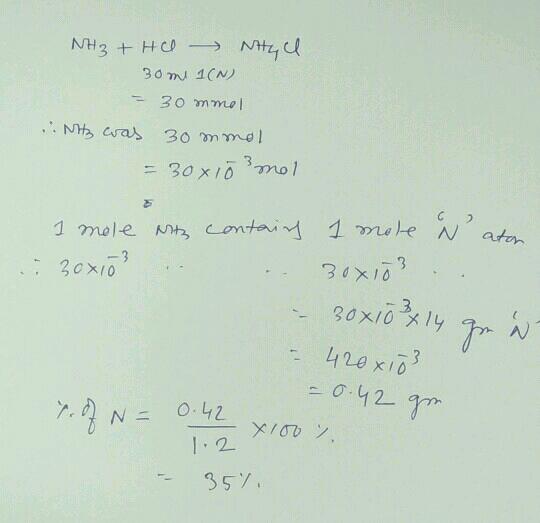 NH3 + HCl → NH4Cl
30 ml 1(N)
= 30 mmol
∴ NH3 was 30 mmol
= 30×10⁻³ mol
1 mole NH3 contains 1 mole 'N' atom
∴ 30×10⁻³ .. .. 30×10⁻³ . .
= 30×10⁻³×14 gm 'N'
= 420×10⁻³
= 0.42 gm
%. of N = 0.42/1.2 ×100 %.
= 35%.